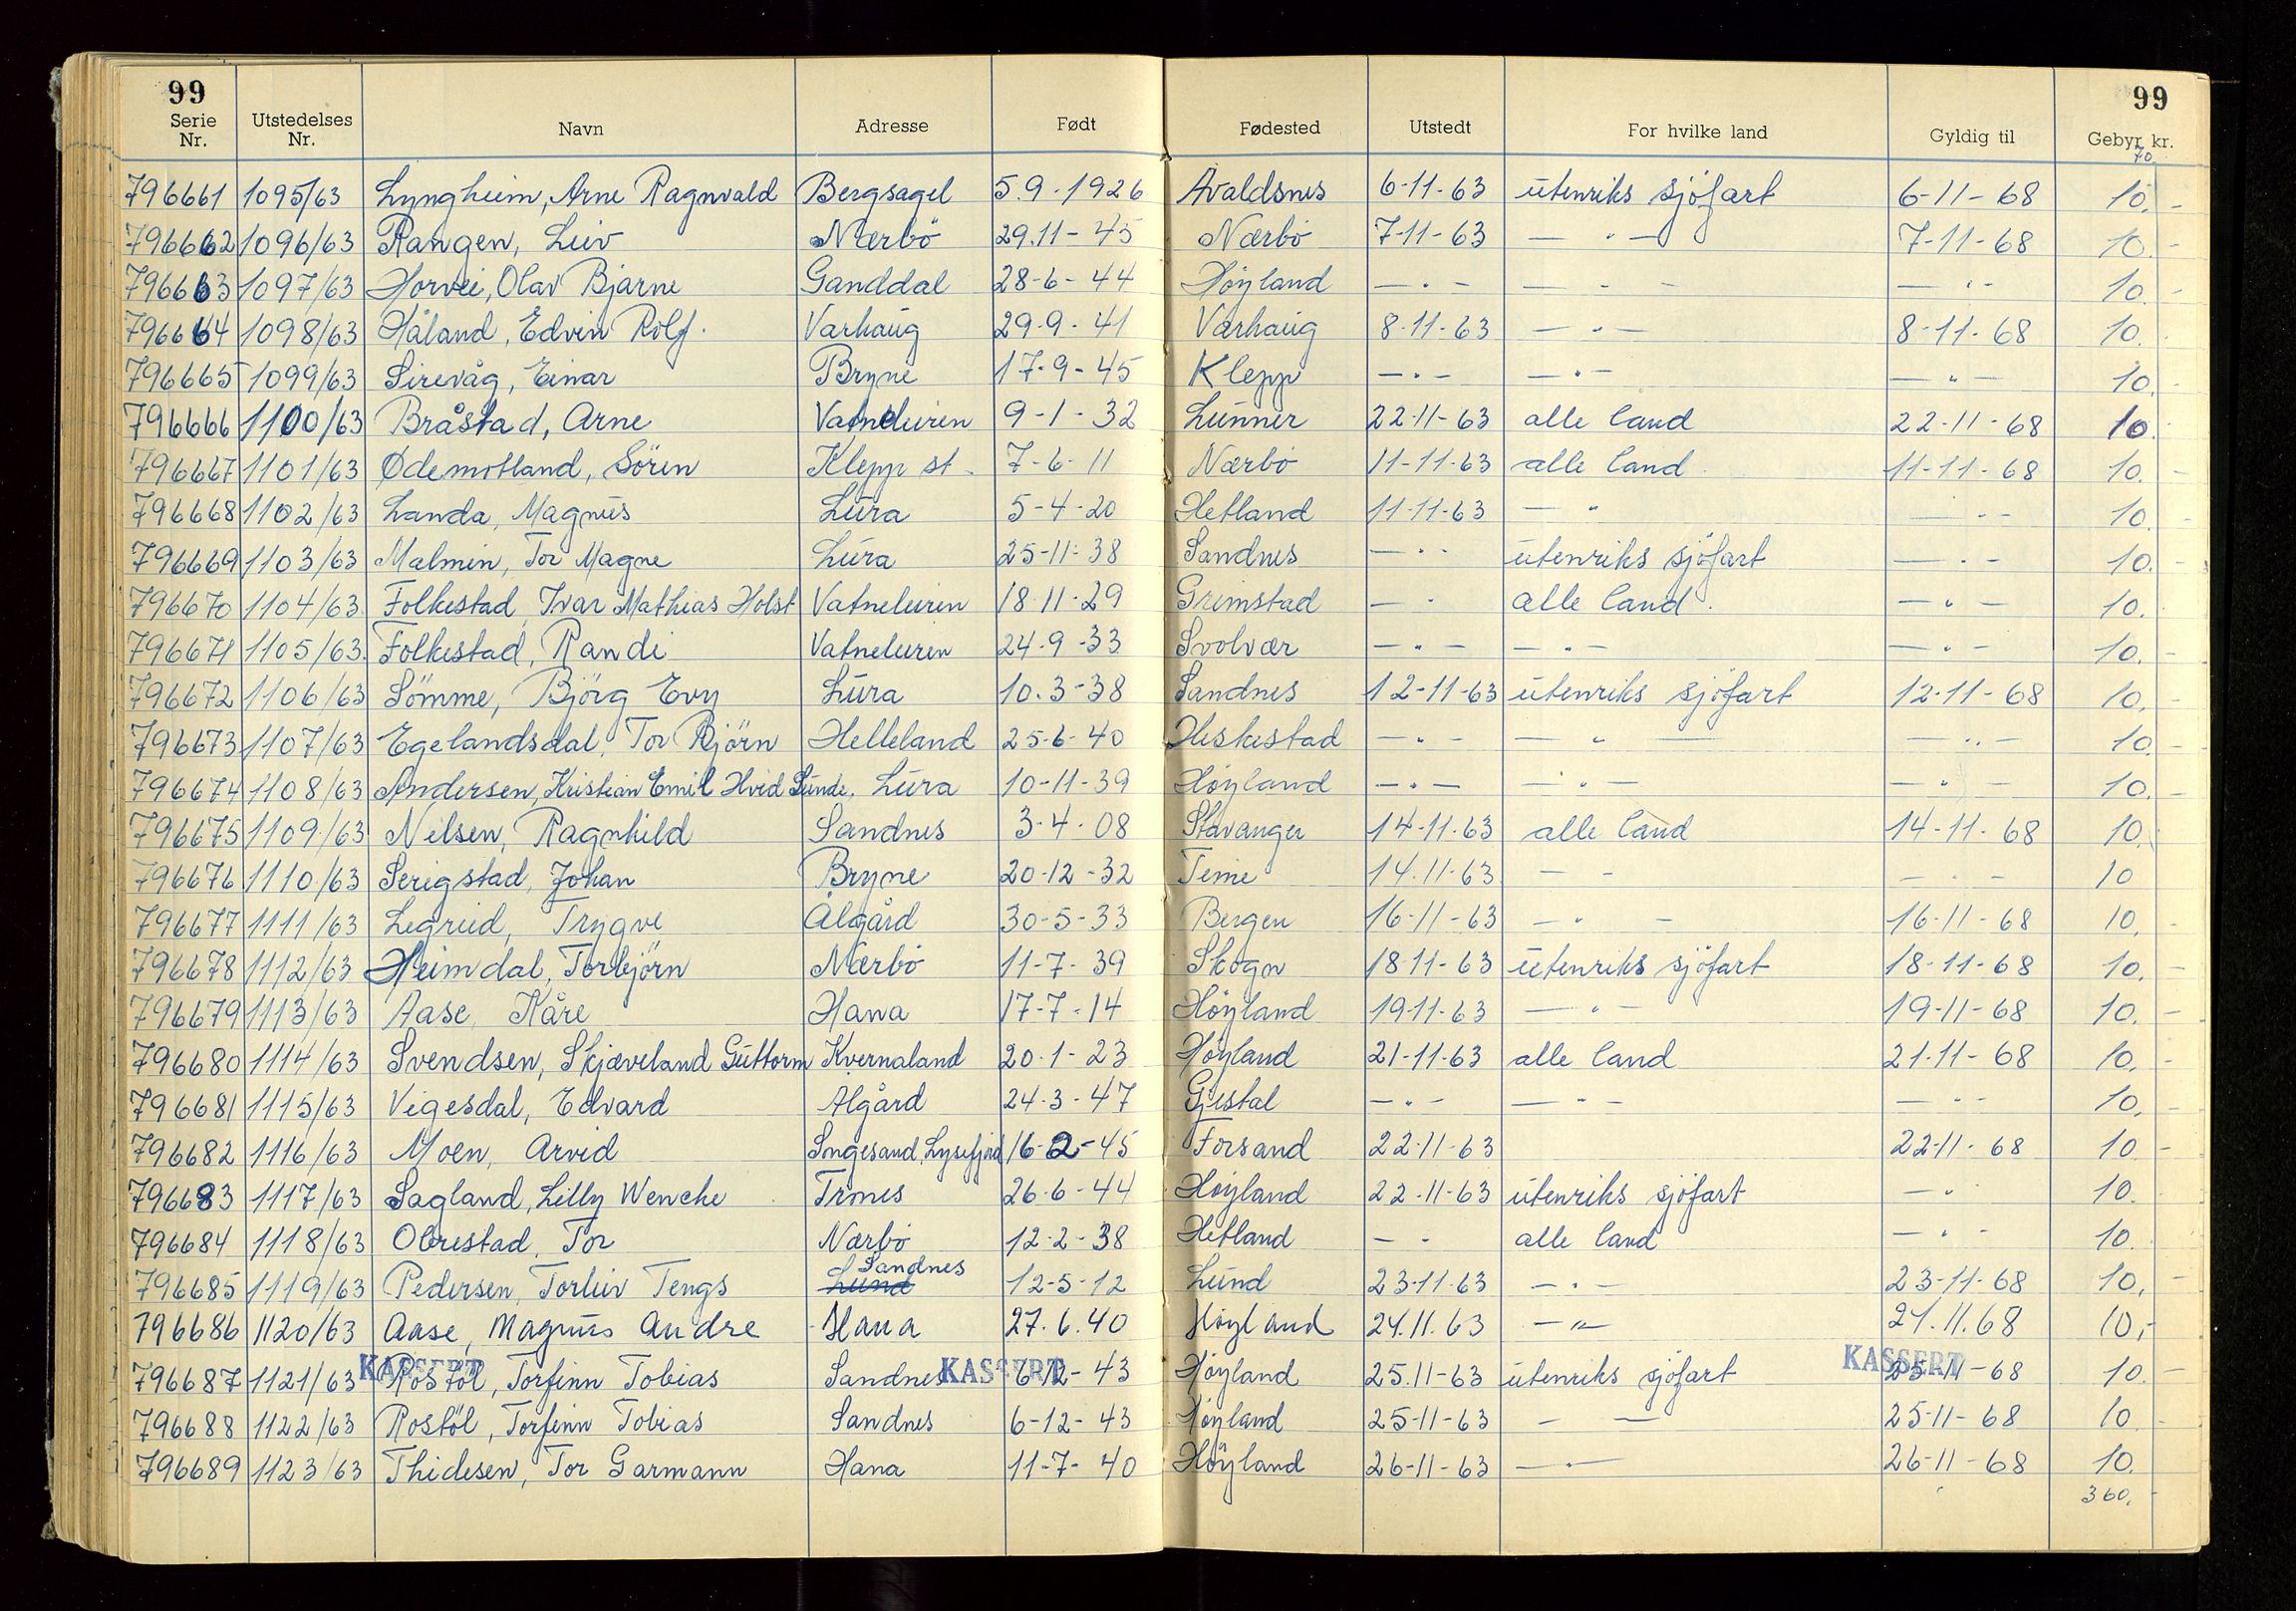 99 99
Serie Nr. Utstedelses Nr. Navn Adresse Født Fødested Utstedt For hvilke land Gyldig til Gebyr kr.
70
796661 1095/63 Lyngheim, Arne Ragnvald Bergsagel 5.9-1926 Avaldsnes 6-11-63 utenriks sjöfart 6-11-68 10.-
796662 1096/63 Rangen, Leiv Nærbö 29.11-45 Nærbö 7-11-63 — " — 7-11-68 10.-
796663 1097/63 Horvei, Olav Bjarne Ganddal 28-6-44 Höyland — " — — " — — " — 10.-
796664 1098/63 Håland, Edvin Rolf. Varhaug 29-9-41 Varhaug 8-11-63 — " — 8-11-68 10.
796665 1099/63 Sirevåg, Einar Bryne 17-9-45 Klepp — " — — " — — " — 10.-
796666 1100/63 Bråstad, Arne Vatneleiren 9-1-32 Lunner 22-11-63 alle land 22-11-68 10.
796667 1101/63 Ødemotland, Sören Klepp st. 7-6-11 Nærbö 11-11-63 alle land 11-11-68 10.-
796668 1102/63 Landa, Magnus Lura 5-4-20 Hetland 11-11-63 — " — " — 10.-
796669 1103/63 Malmin, Tor Magne Lura 25-11-38 Sandnes — " - utenriks sjöfart — " — 10.-
796670 1104/63 Folkestad, Ivar Mathias Holst Vatneleiren 18-11-29 Grimstad — " alle land. — " — 10.
796671 1105/63 Folkestad, Randi Vatneleiren 24-9-33 Svolvær — " — — " — — " — 10.-
796672 1106/63 Sömme, Björg Evy Lura 10.3-38 Sandnes 12-11-63 utenriks sjöfart 12-11-68 10.-
796673 1107/63 Egelandsdal, Tor Björn Helleland 25-6-40 Heskestad — " — — " — — " — 10.-
796674 1108/63 Andersen, Kristian Emil Hvid Sunde. Lura 10-11-39 Höyland — " — — " — — " — 10.-
796675 1109/63 Nilsen, Ragnhild Sandnes 3-4-08 Stavanger 14-11-63 alle land 14-11-68 10.
796676 1110/63 Serigstad, Johan Bryne 20-12-32 Time 14.11-63 — - — " — 10
796677 1111/63 Legreid, Trygve Ålgård 30-5-33 Bergen 16-11-63 — " — 16-11-68 10.-
796678 1112/63 Heimdal, Torbjörn Nærbö 11-7-39 Skogn 18-11-63 utenriks sjöfart 18-11-68 10.-
796679 1113/63 Aase, Kåre Hana 17-7-14 Höyland 19-11-63 — " — 19-11-68 10.-
796680 1114/63 Svendsen, Skjæveland Guttorm Kvernaland 20-1-23 Höyland 21-11-63 alle land 21-11-68 10.-
796681 1115/63 Vigesdal, Edvard Ålgård 24-3-47 Gjestal — " — — " — — " — 10.-
796682 1116/63 Moen, Arvid Songesand, Lysefjord 16-2-45 Forsand 22-11-63 22-11-68 10 -
796683 1117/63 Sagland, Lilly Wenche Trones 26-6-44 Höyland 22-11-63 utenriks sjöfart — " 10.
796684 1118/63 Obrestad, Tor Nærbö 12-2-38 Hetland — - alle land — " - 10.
796685 1119/63 Pedersen, Torleiv Tengs Lund Sandnes 12-5-12 Lund 23-11-63 — " — 23-11-68 10,-
796686 1120/63 Aase, Magnus Andre Hana 27.6.40 Höyland 24.11.63 — " — 24.11.68 10,-
796687 1121/63 Rostöl, Torfinn Tobias Sandnes 6-12-43 Höyland 25.11-63 utenriks sjöfart 25-11-68 10.-
KASSERT KASSERT KASSERT
796688 1122/63 Rostöl, Torfinn Tobias Sandnes 6-12-43 Höyland 25-11-63 - — 25-11-68 10 -
796689 1123/63 Thidesen, Tor Garmann Hana 11-7-40 Höyland 26-11-63 — " — 26-11-68 10.
360.-